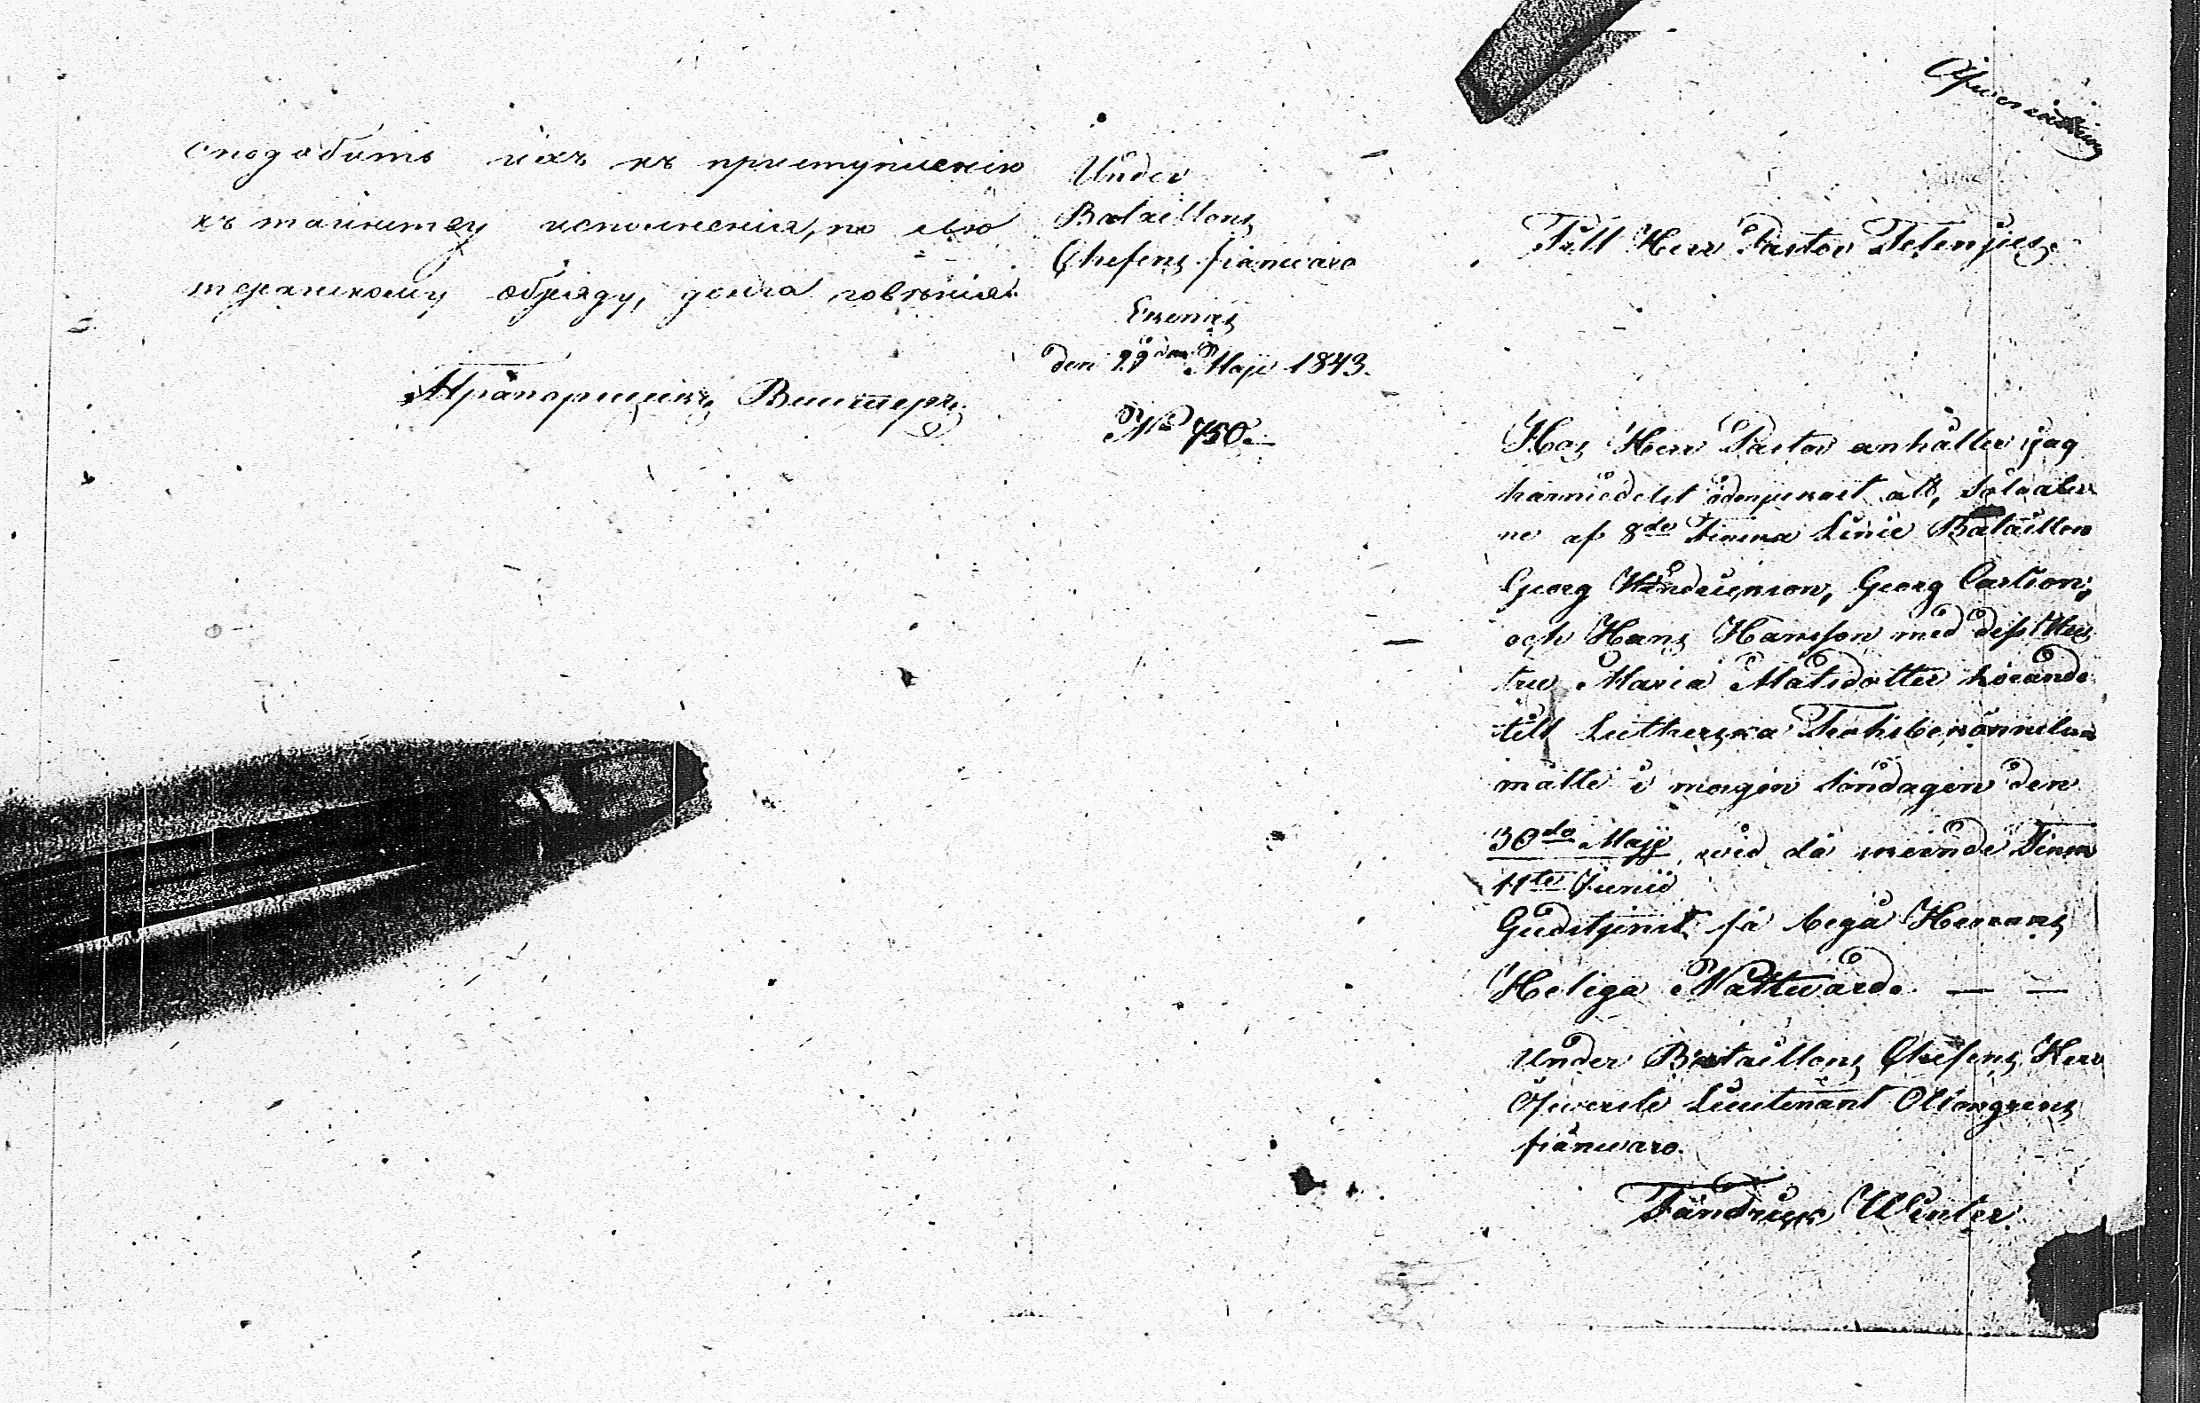 сподобить ихъ къ приступленію
къ таинству исполненія, по лю
теранскому обряду, долга говѣнія.
Прапорщикъ Винтеръ
Under
Bataillons
Chefens frånwaro
Ekenäs
den 29 de Maji 1843.
No 450.
Öfwersättning
Till Herr Pastor
Hos Herr Pastor anhåller jag
härmedelst ödmjukast att, Soldater
ne af 8de Finska Linie Bataillon
Georg Georg Carlson,
och Hans Hansson med dess Hus
tru Maria Matsdotter hörande
till Lutherska Trosbekännelsen
måtte i morgon söndagen den
30de Maji wid då Finska
11te Junii
Gudstjenst få begå Herrans
Heliga Nattward. — —
Under Bataillons Chefens Herr
Öfwerste Lieutenant
frånwaro.
Fändrick Winter.